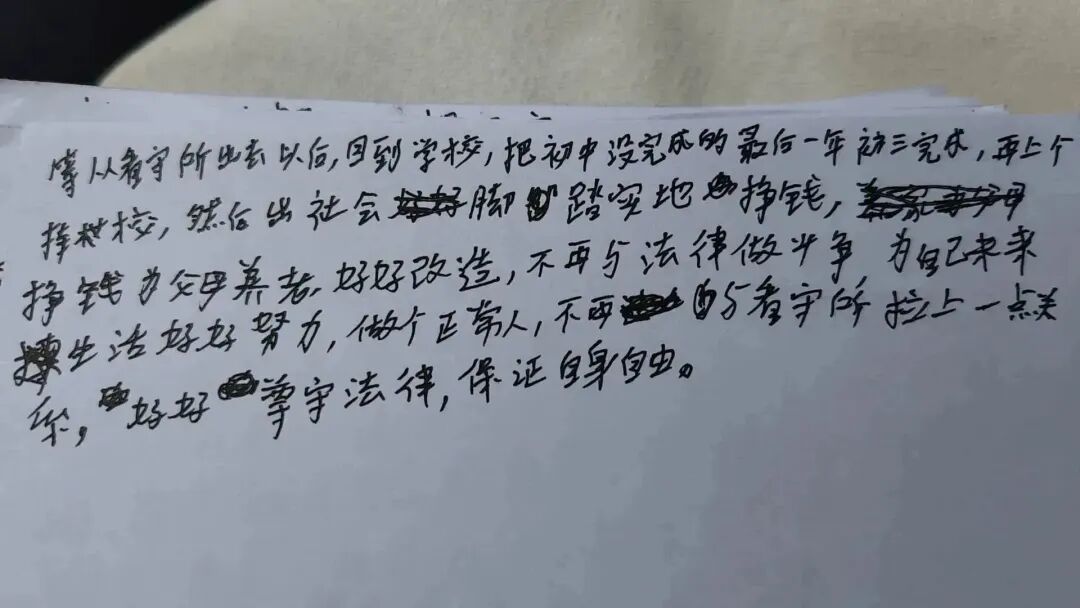 等从看守所出去以后,回到学校,把初中没完成的最后一年初三完成,再上个
择校,然后出社会脚踏实地挣钱,
挣钱为父母养老,好好改造,不再与法律做斗争,为自己未来
生活好好努力,做个正常人,不再与看守所拉上一点关
系,好好尊守法律,保证自身自由。